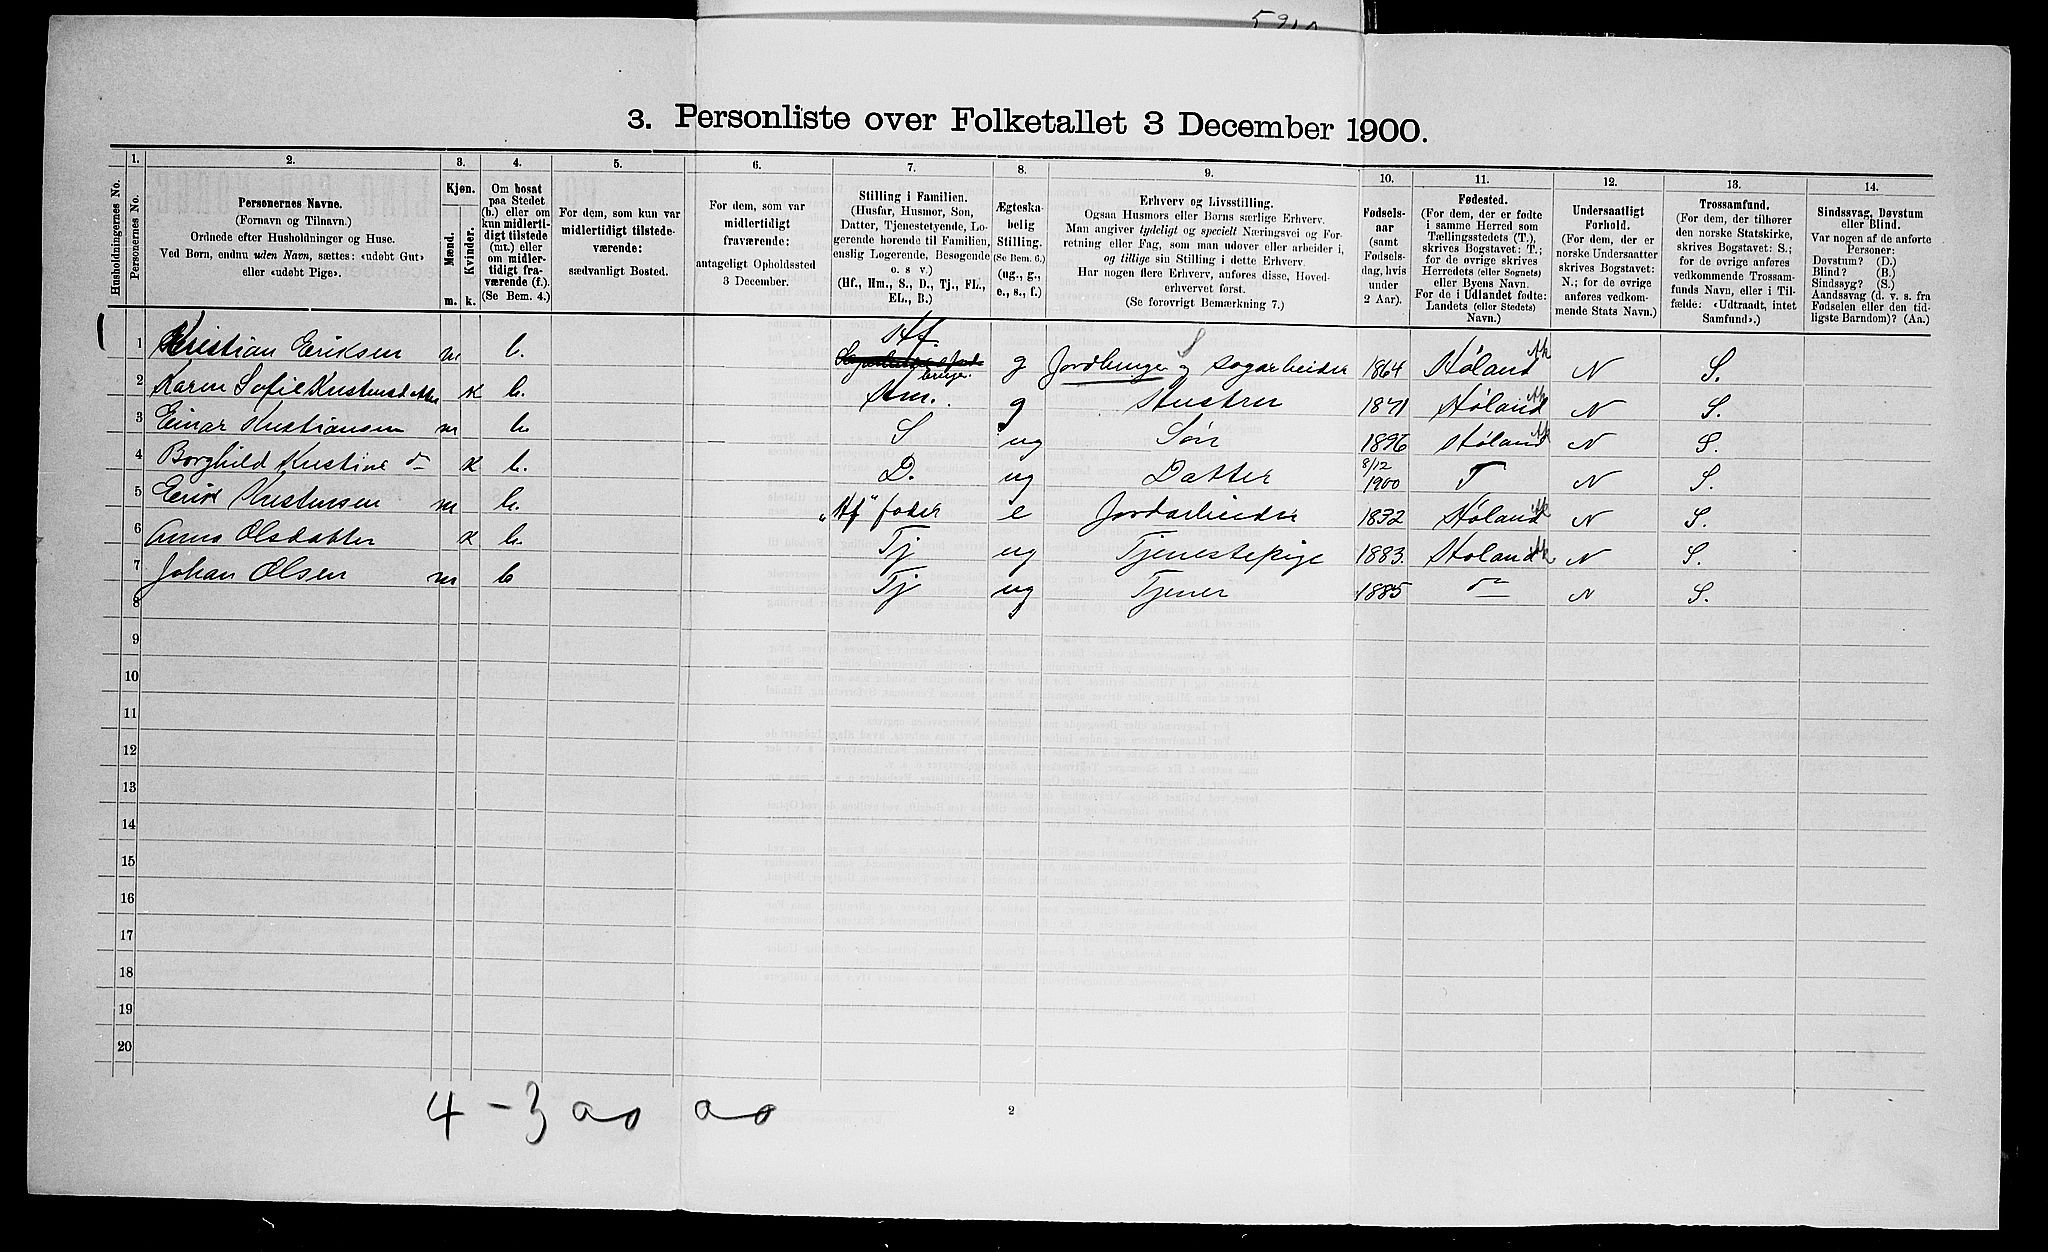 3. Personliste over Folketallet 3 December 1900.
Husholdningernes No.
1.
Personernes No.
2.
Personernes Navne.
(Fornavn og Tilnavn.)
Ordnede efter Husholdninger og Huse.
Ved Børn, endnu uden Navn, sættes: «udøbt Gut»
eller «udøbt Pige».
3.
Kjøn.
Mænd.
Kvinder.
m. k.
4.
Om bosat
paa Stedet
(b.) eller om
kun midlerti-
digt tilstede
(mt.) eller
om midler-
tidigt fra-
værende (f.).
(Se Bem. 4.)
5.
For dem, som kun var
midlertidigt tilstede-
værende:
sædvanligt Bosted.
6.
For dem, som var
midlertidigt
fraværende:
antageligt Opholdssted
3 December.
7.
Stilling i Familien.
(Husfar, Husmor, Søn,
Datter, Tjenestetyende, Lo-
gerende hørende til Familien,
enslig Logerende, Besøgende
o. s v.)
(Hf., Hm., S., D., Tj., FL.,
EL., B.)
8.
Ægteska-
belig
Stilling.
(Se Bem. 6.)
(ug., g.,
e., s., f.)
9.
Erhverv og Livsstilling.
Ogsaa Husmors eller Børns særlige Erhverv.
Man angiver tydeligt og specielt Næringsvei og For-
retning eller Fag, som man udøver eller arbeider i,
og tillige sin Stilling i dette Erhverv.
Har nogen flere Erhverv, anføres disse, Hoved-
erhvervet først.
(Se forøvrigt Bemærkning 7.)
10.
Fødsels-
aar
(samt
Fødsels-
dag, hvis
under
2 Aar).
11.
Fødested.
(For dem, der er fødte
i samme Herred som
Tællingsstedets (T.),
skrives Bogstavet: T.;
for de øvrige skrives
Herredets (eller Sognets)
eller Byens Navn.
For de i Udlandet fødte:
Landets (eller Stedets)
Navn.)
12.
Undersaatligt
Forhold.
(For dem, der er
norske Undersaatter
skrives Bogstavet:
N.; for de øvrige
anføres vedkom-
mende Stats Navn.)
13.
Trossamfund.
(For dem, der tilhører
den norske Statskirke,
skrives Bogstavet: S.;
for de øvrige anføres
vedkommende Trossam-
funds Navn, eller i Til-
fælde: «Udtraadt, intet
Samfund».)
14.
Sindssvag, Døvstum
eller Blind.
Var nogen af de anførte
Personer:
Døvstum? (D.)
Blind? (B.)
Sindssyg? (S.)
Aandssvag (d. v. s. fra
Fødselen eller den tid-
ligste Barndom)? (Aa.)
1 Kristian Eriksen m b. Hf. g Jordbruger og sagarbeider 1864 Høland Ak N S.
2 Karen Sofie Kristensdatter k b. Hm. g Hustru 1871 Høland Ak N S.
3 Einar Kristiansen m b. S ug Søn 1896 Høland Ak N S.
4 Borghild Kristine do k b. D. ug Datter 8/12 1900 T N S.
5 Erik Kristensen m b. "Hf" fader e Jordarbeider 1832 Høland Ak N S.
6 Anna Olsdatter k b. Tj ug Tjenestepige 1883. Høland Ak N S.
7 Johan Olsen m b Tj ug Tjener 1885 do N S.
8
9
10
11
12
13
14
15
16
17
18
19
20
4 - 3 00 00
2